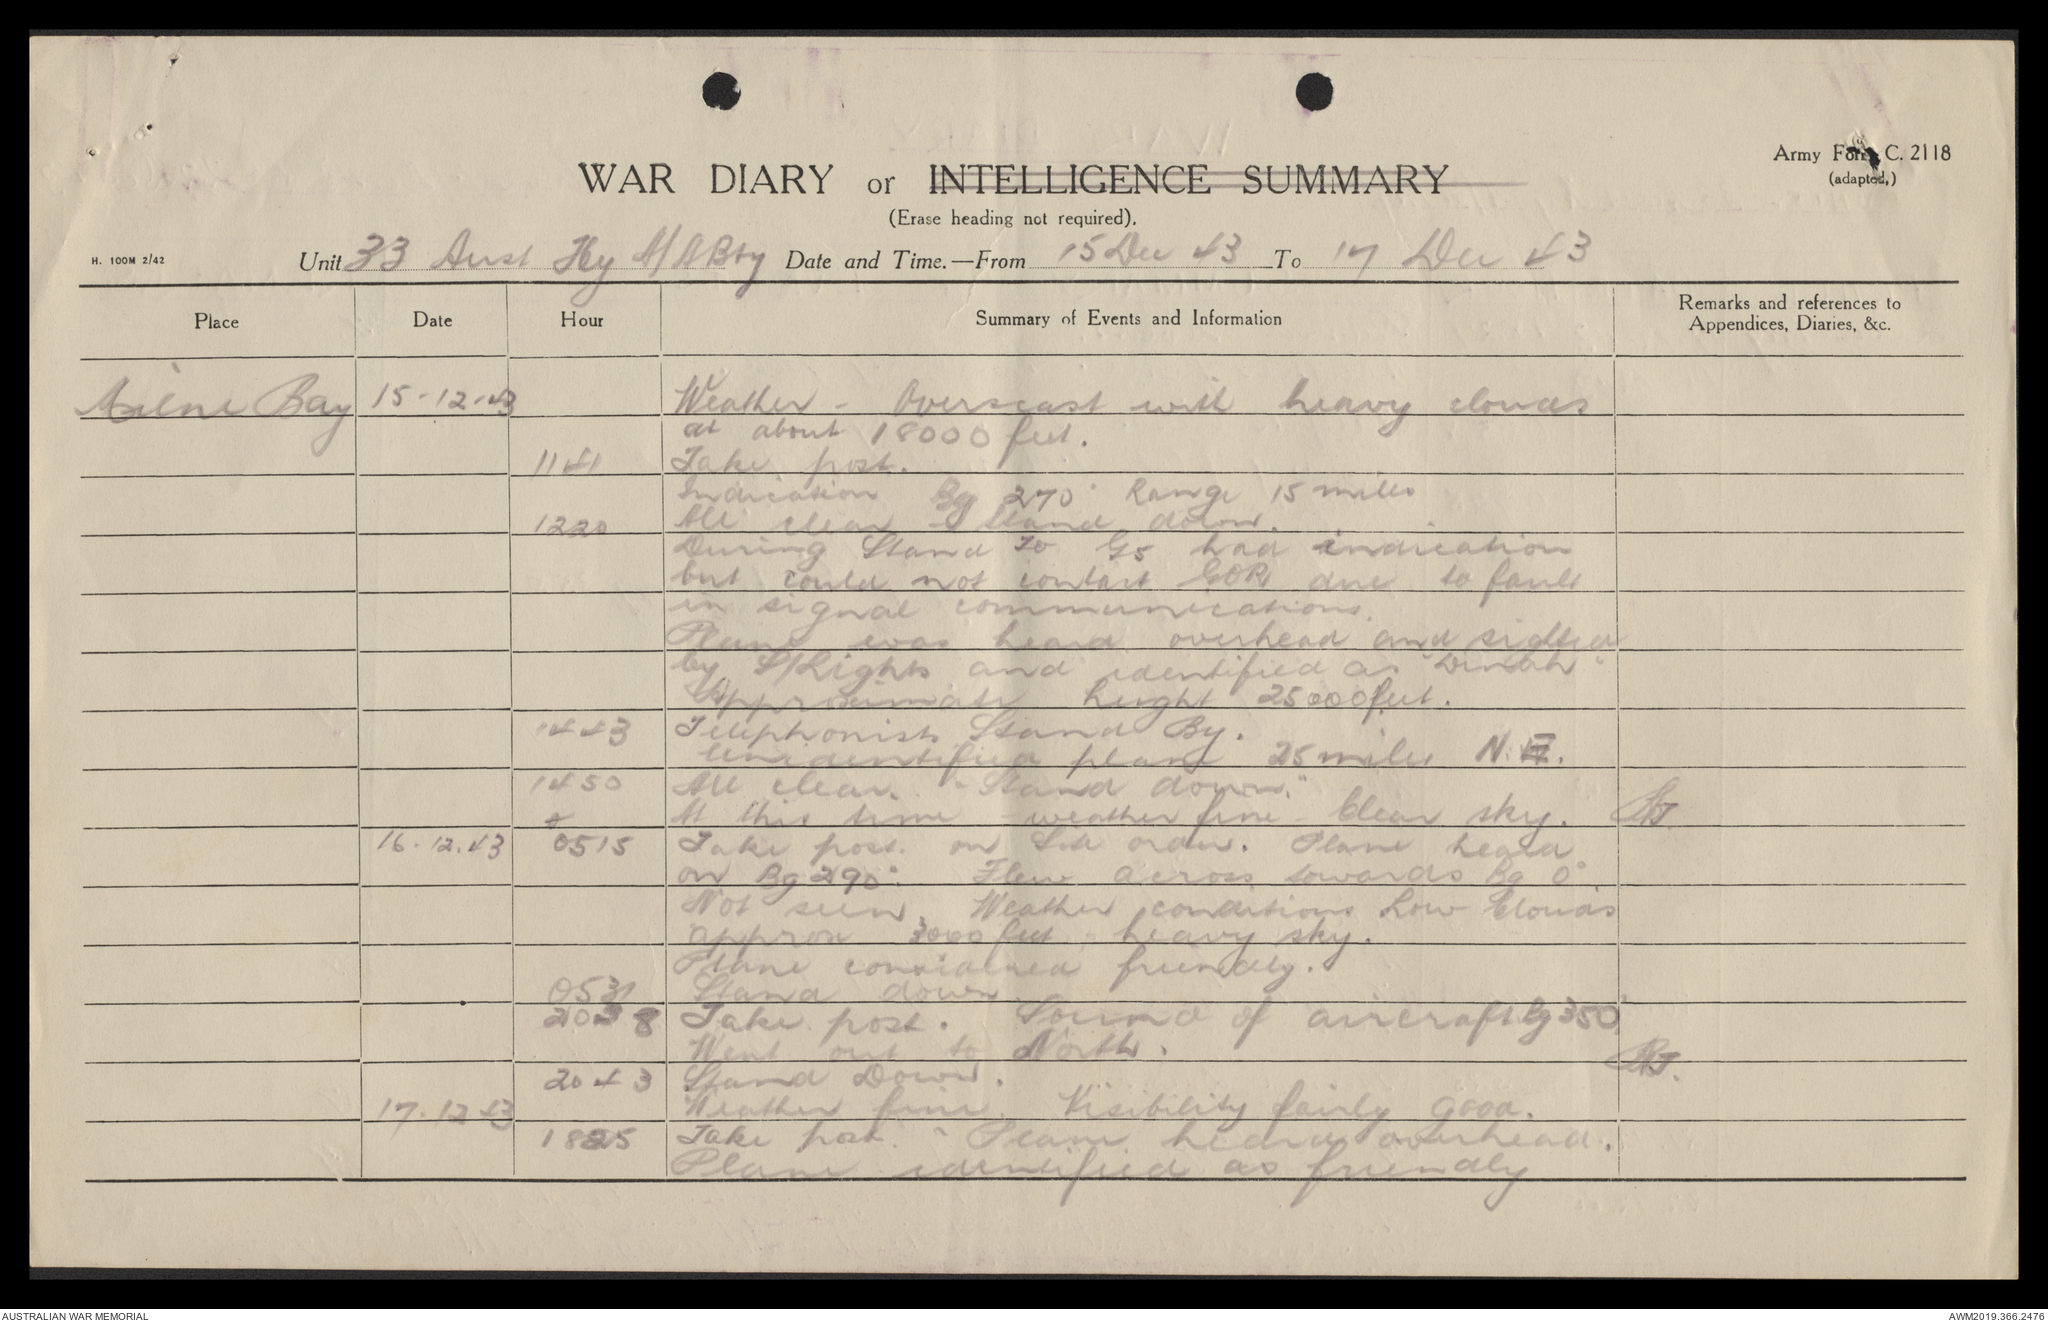 Army Form C. 2118
(adapted,)
WAR DIARY or INTELLIGENCE SUMMARY
(Erase heading not required).
H. 100M 2/42
Unit 33 Aust Hy A/A Bty Date and Time.—From 15 Dec 43 To 17 Dec 43
Place Date Hour Summary of Events and Information Remarks and references to Appendices, Diaries, &c.
Milne Bay 15-12-43 Weather - Overscast with heavy clouds
at about 18000 feet.
1141 Take post.
Indication Bg 270° Range 15 miles
1220 All clear - Stand down.
During Stand To G5 had indication
but could not contact GOR due to fault
in signal communications.
Plane was heard overhead and sighted
by S/Lights and identified as "Dinah"
Approximate height 25000 feet.
1443 Telephonists Stand By.
Unidentified plane 25 miles N.E.
1450 All clear. "Stand down."
At this time - weather fine - Clear sky.
16.12.43 0515 Take post on order. Plane heard
on Bg 290°. Flew across towards Bg 0°.
Not seen. Weather conditions Low Clouds
approx 3000 feet - heavy sky.
Plane considered friendly.
0531 Stand down
2038 Take post. Sound of aircraft Bg 350°
Went out to North.
2043 Stand Down.
17-12-43 Weather fine. Visibility fairly good.
1825 Take post - Plane heard overhead.
Plane identified as friendly
AUSTRALIAN WAR MEMORIAL
AWM2019.366.2476